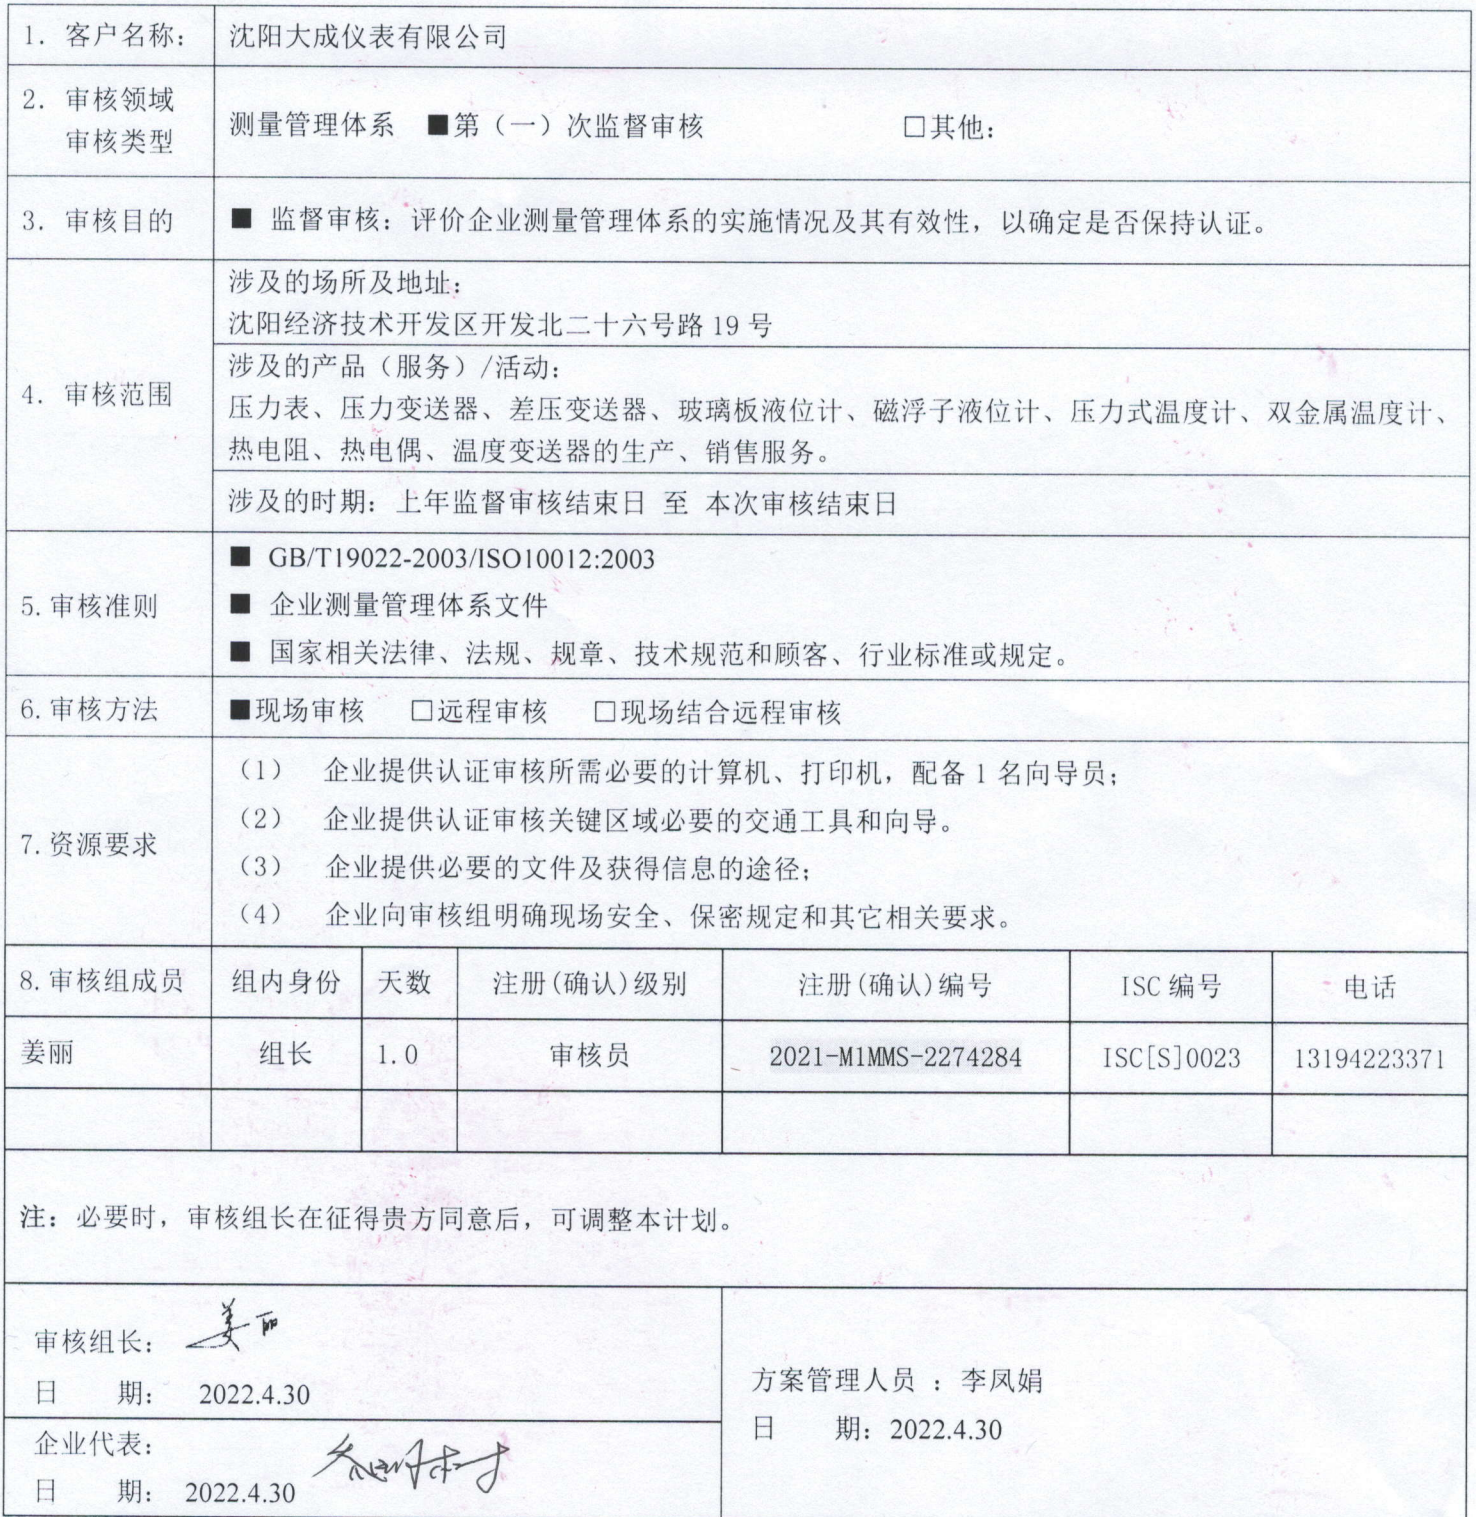 1. 客户名称： 沈阳大成仪表有限公司
2. 审核领域
审核类型
测量管理体系 ■第（一）次监督审核 □其他：
3. 审核目的 ■ 监督审核：评价企业测量管理体系的实施情况及其有效性，以确定是否保持认证。
4. 审核范围
涉及的场所及地址：
沈阳经济技术开发区开发北二十六号路 19 号
涉及的产品（服务）/活动：
压力表、压力变送器、差压变送器、玻璃板液位计、磁浮子液位计、压力式温度计、双金属温度计、
热电阻、热电偶、温度变送器的生产、销售服务。
涉及的时期：上年监督审核结束日 至 本次审核结束日
5.审核准则
■ GB/T19022-2003/ISO10012:2003
■ 企业测量管理体系文件
■ 国家相关法律、法规、规章、技术规范和顾客、行业标准或规定。
6.审核方法 ■现场审核 □远程审核 □现场结合远程审核
7.资源要求
（1） 企业提供认证审核所需必要的计算机、打印机，配备 1 名向导员；
（2） 企业提供认证审核关键区域必要的交通工具和向导。
（3） 企业提供必要的文件及获得信息的途径；
（4） 企业向审核组明确现场安全、保密规定和其它相关要求。
8.审核组成员 组内身份 天数 注册(确认)级别 注册(确认)编号 ISC 编号 电话
姜丽 组长 1.0 审核员 2021-M1MMS-2274284 ISC[S]0023 13194223371
注：必要时，审核组长在征得贵方同意后，可调整本计划。
审核组长： 姜丽
日 期： 2022.4.30
企业代表：
日 期： 2022.4.30
方案管理人员 ：李凤娟
日 期：2022.4.30